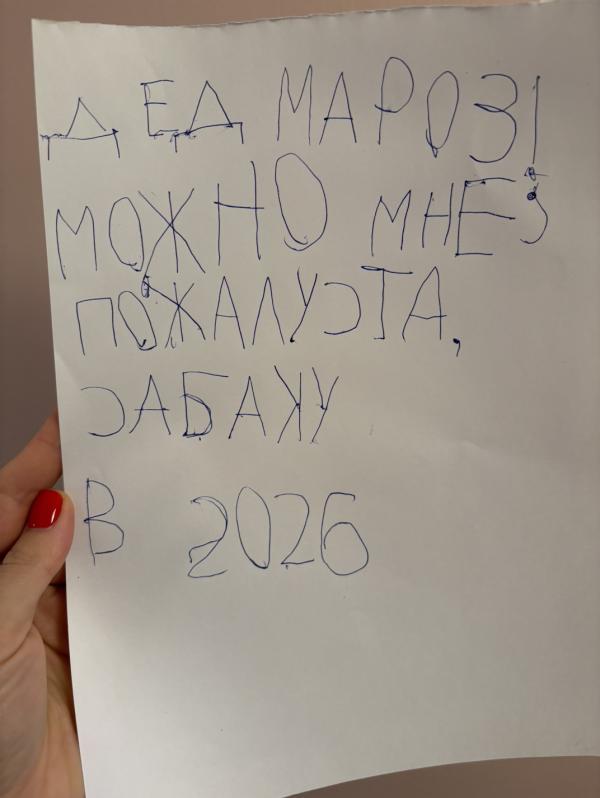 ДЕД МАРОЗ!
МОЖНО МНЕ,
ПОЖАЛУСТА,
САБАКУ
В 2026